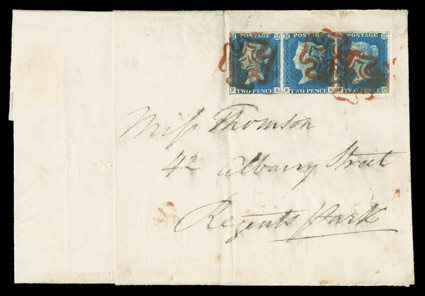 POSTAGE POSTAGE POSTAGE
TWO PENCE TWO PENCE TWO PENCE
Miss Thomson
42 Albany Street
Regents Park